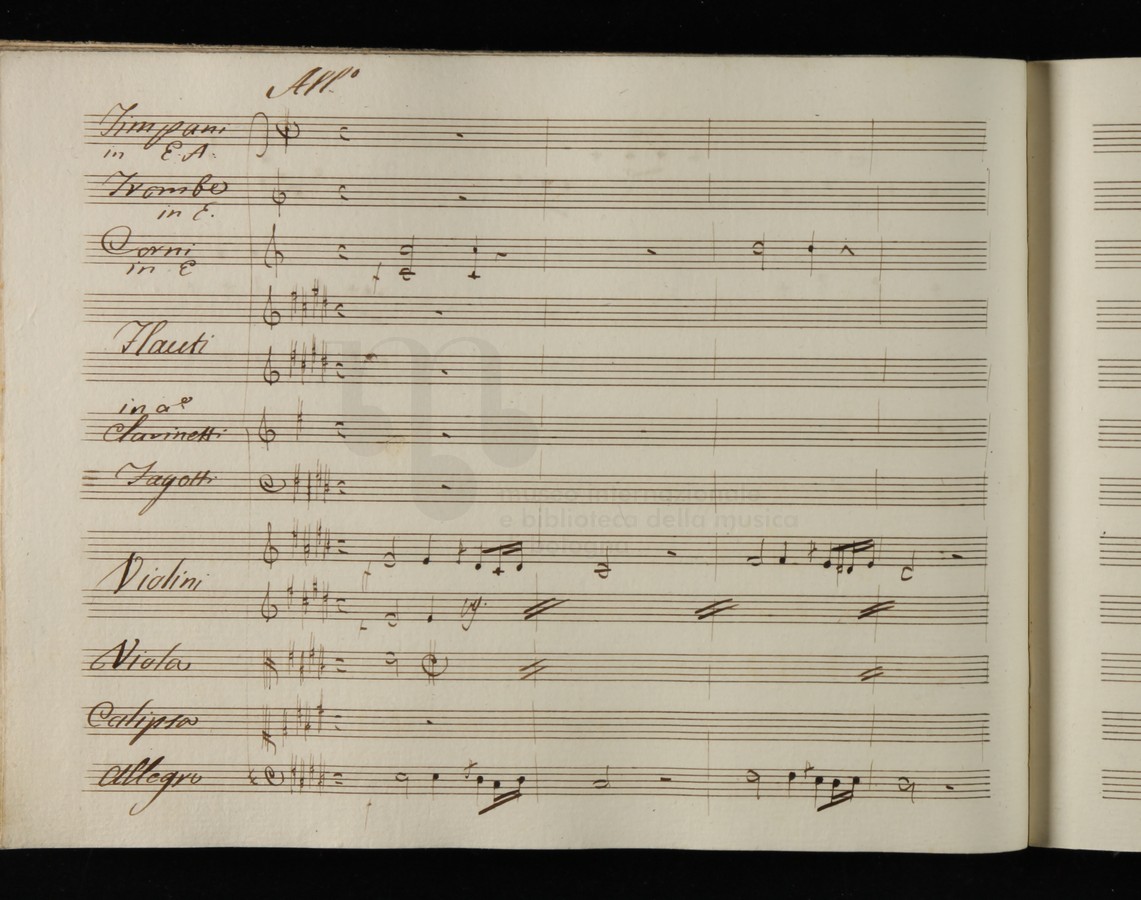 All.º
Timpani
in E. A.
Trombe
in E.
Corni
in E
Flauti
in a
Clarinetti
Fagotti
museo internazionale
e biblioteca della musica
Violini
Viola
Calipso
Allegro